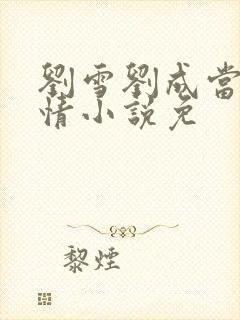 劉雪劉成當
情小說免
黎煙